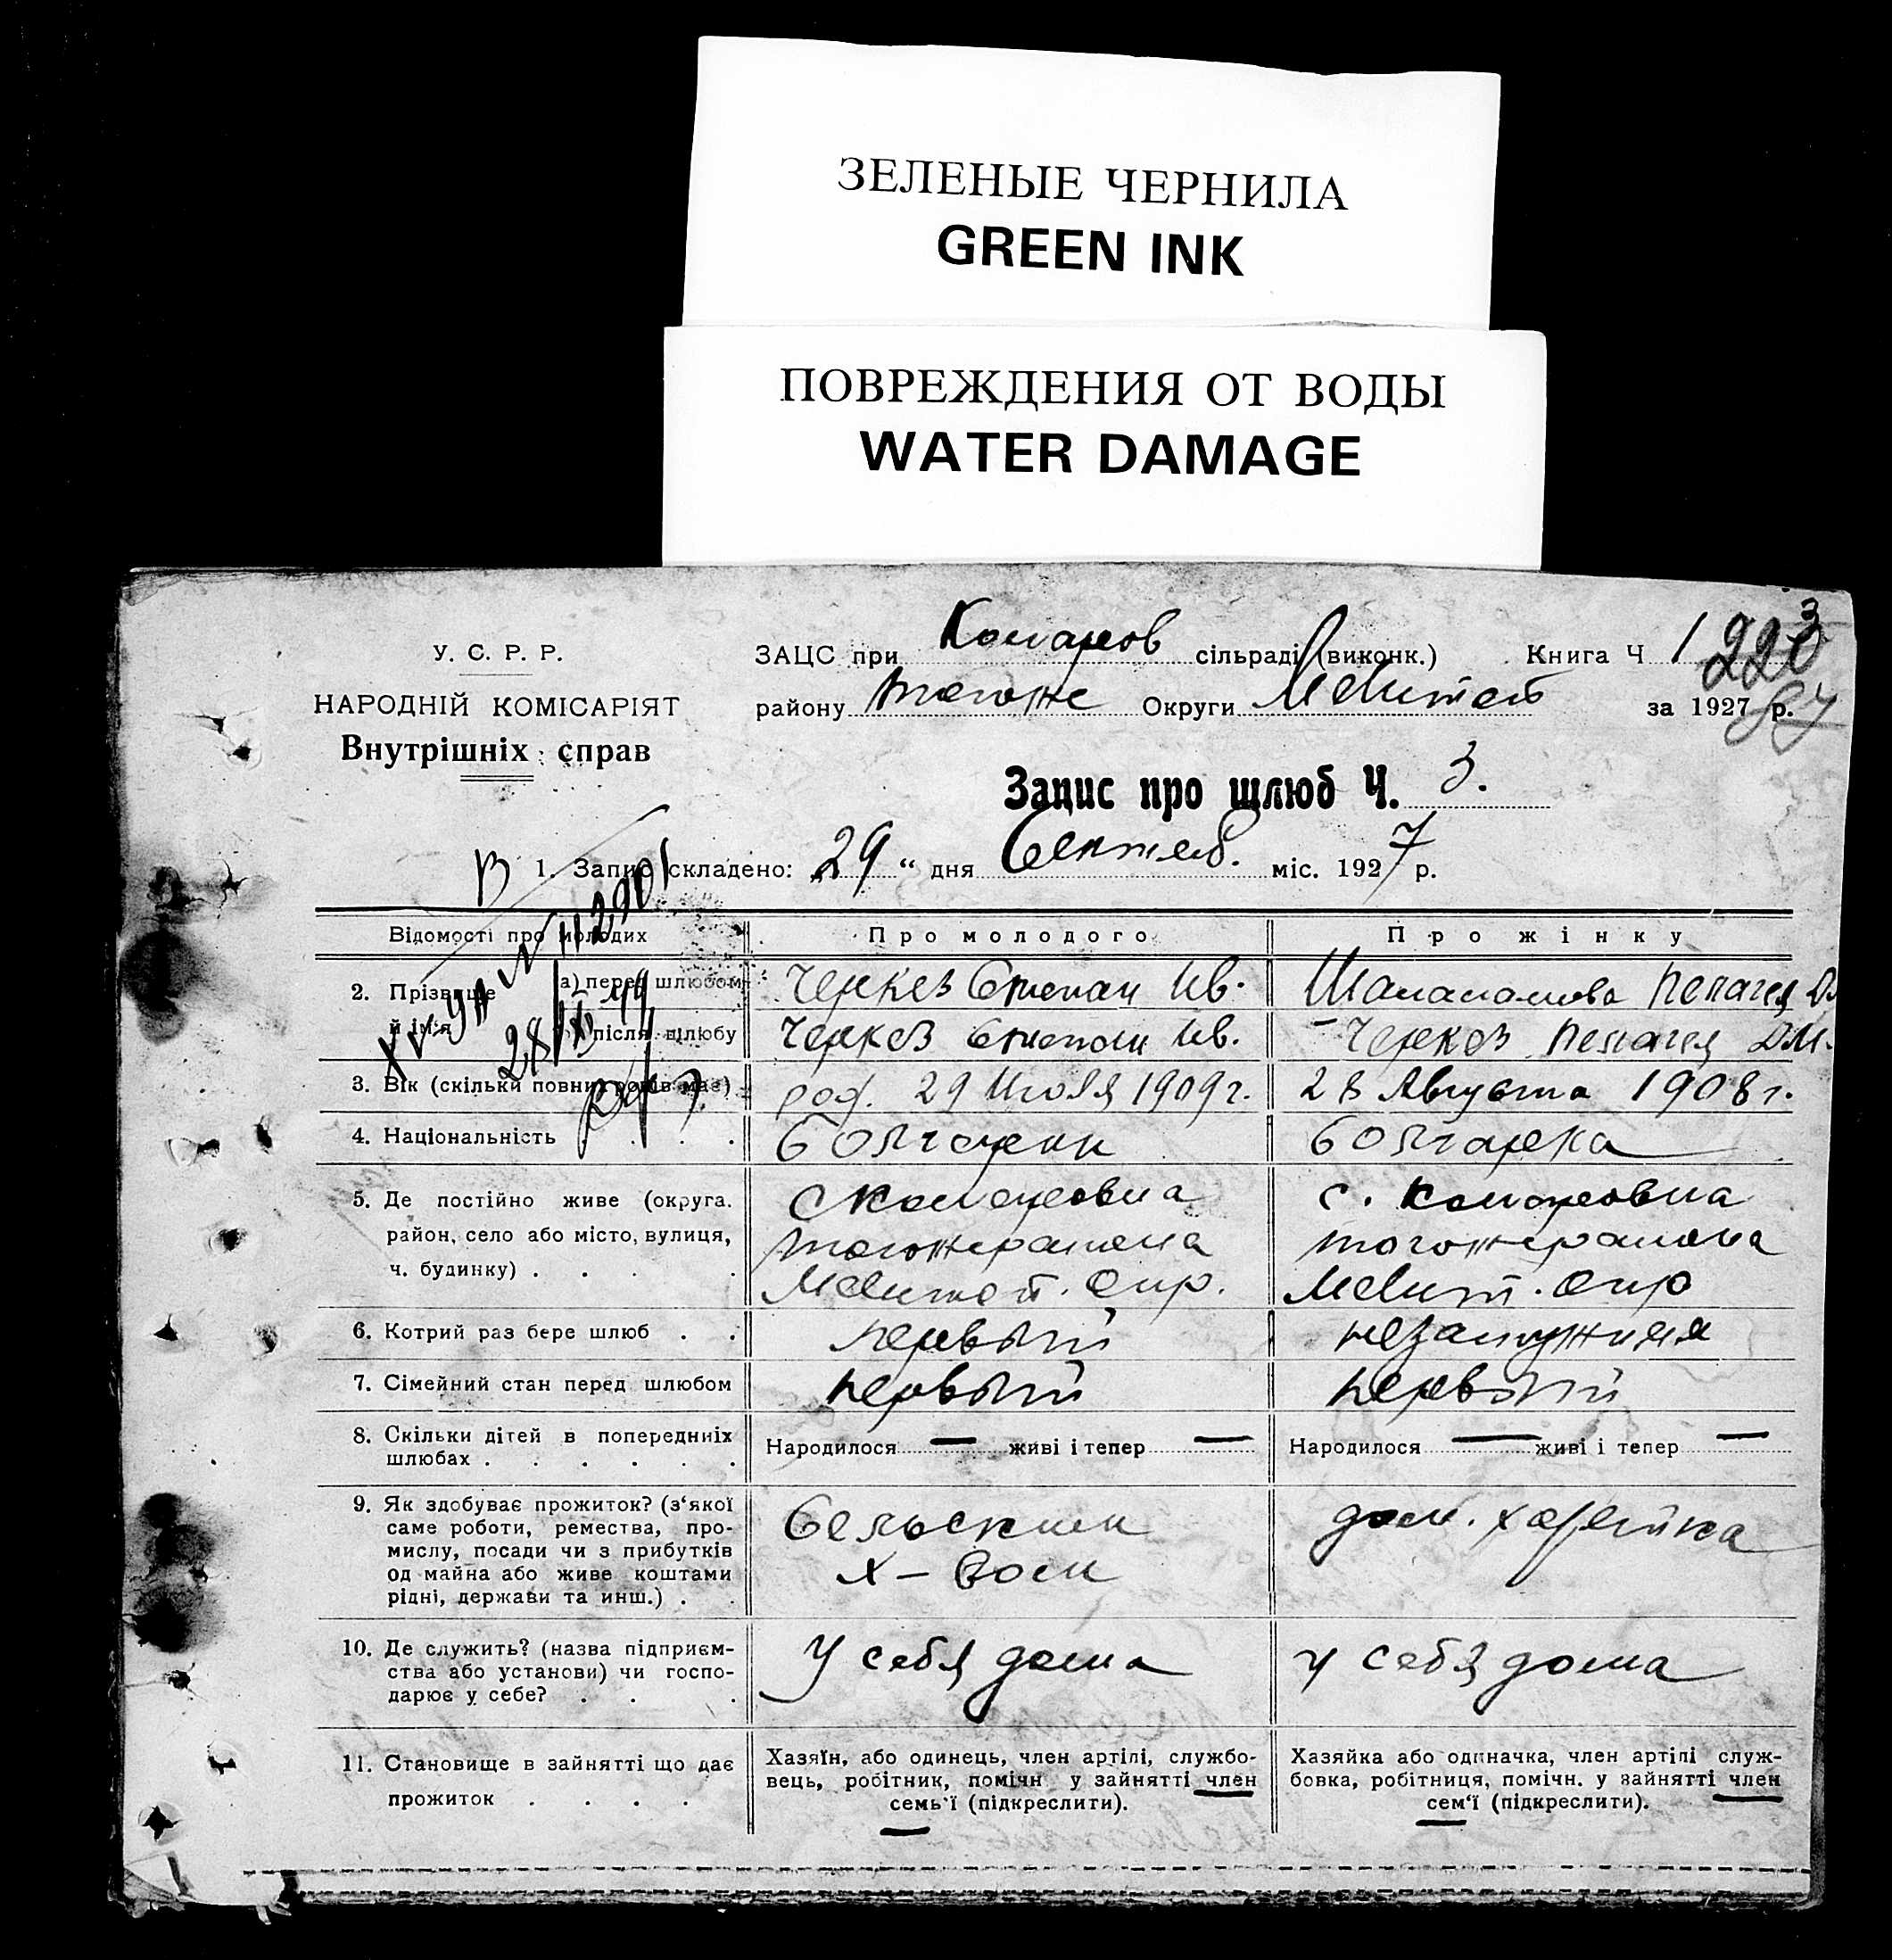 ЗЕЛЕНЫЕ ЧЕРНИЛА
GREEN INK
ПОВРЕЖДЕНИЯ ОТ ВОДЫ
WATER DAMAGE
У. С. Р. Р.
НАРОДНІЙ КОМІСАРІЯТ
Внутрішніх справ
ЗАЦС при сільраді (виконк.) Книга Ч 1
району тогоже Округи Мелитоп
за 1927 р.
Запис про шлюб Ч. 3.
1. Запис складено: „29“ дня Сентяб. міс. 1927 р.
Відомості про молодих
Про молодого
Про жінку
2. Прізвище й ім'я
а) перед шлюбом
Черкез Степан Ив.
Пелагея
після шлюбу
Черкез Степан Ив.
Черкез Пелагея Дм.
3. Вік (скільки повних років має)
род. 29 Июля 1909 г.
28 Августа 1908 г.
4. Національність . . .
болгарин
болгарка
5. Де постійно живе (округа.
район, село або місто, вулиця,
ч. будинку) . . . .
тогоже района
Мелитоп. Окр.
с.
тогоже района
Мелит. Окр
6. Котрий раз бере шлюб . .
первый
незамужняя
7. Сімейний стан перед шлюбом
первый
первый
8. Скільки дітей в попередниіх
шлюбах . . . . . .
Народилося — живі і тепер —
Народилося — живі і тепер —
9. Як здобуває прожиток? (з‘якої
саме роботи, ремества, про-
мислу, посади чи з прибутків
од майна або живе коштами
рідні, держави та инш.) . .
Сельским
х-вом
дом. хозяйка
10. Де служить? (назва підприєм-
ства або установи) чи госпо-
дарює у себе? . . .
У себя дома
у себя дома
11. Становище в зайнятті що дає
прожиток . . . .
Хазяїн, або одинець, член артілі, службо-
вець, робітник, помічн у зайнятті член
семь'ї (підкреслити).
Хазяйка або одиначка, член артілі служ-
бовка, робітниця, помічн. у зайнятті член
сем‘ї (підкреслити).